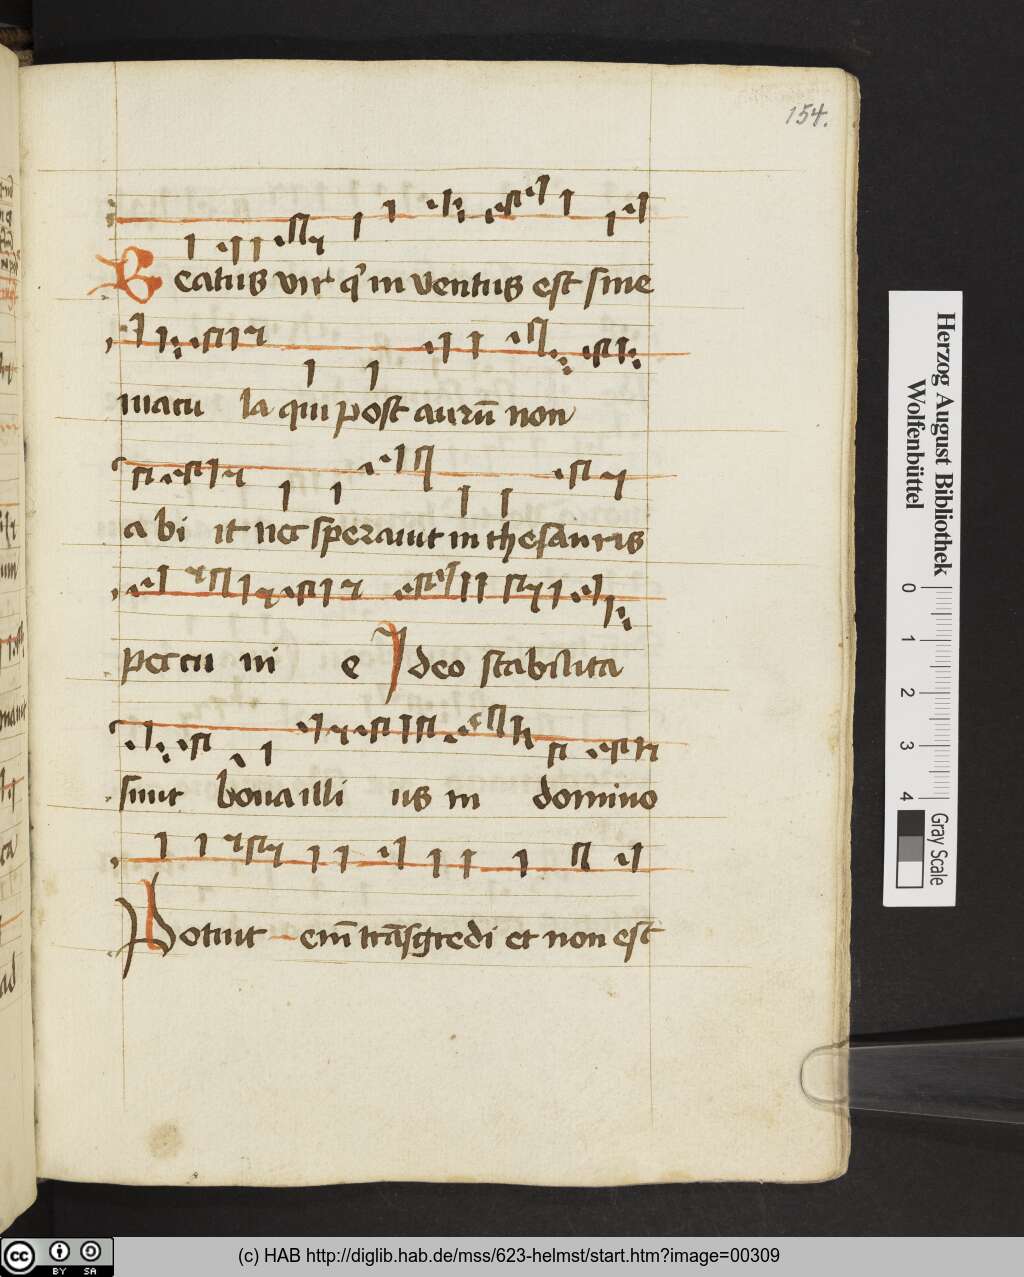 154.
Beatus vir q' in ventus est sine
macu la qui post aurū non
abi it nec speravit in thesauris
peccu ni e Ideo stabilita
sunt bona illi us in domino
Potuit em̄ trāsgredi et non est
Herzog August Bibliothek
Wolfenbüttel
0 1 2 3 4
Gray Scale
cc BY SA
(c) HAB http://diglib.hab.de/mss/623-helmst/start.htm?image=00309